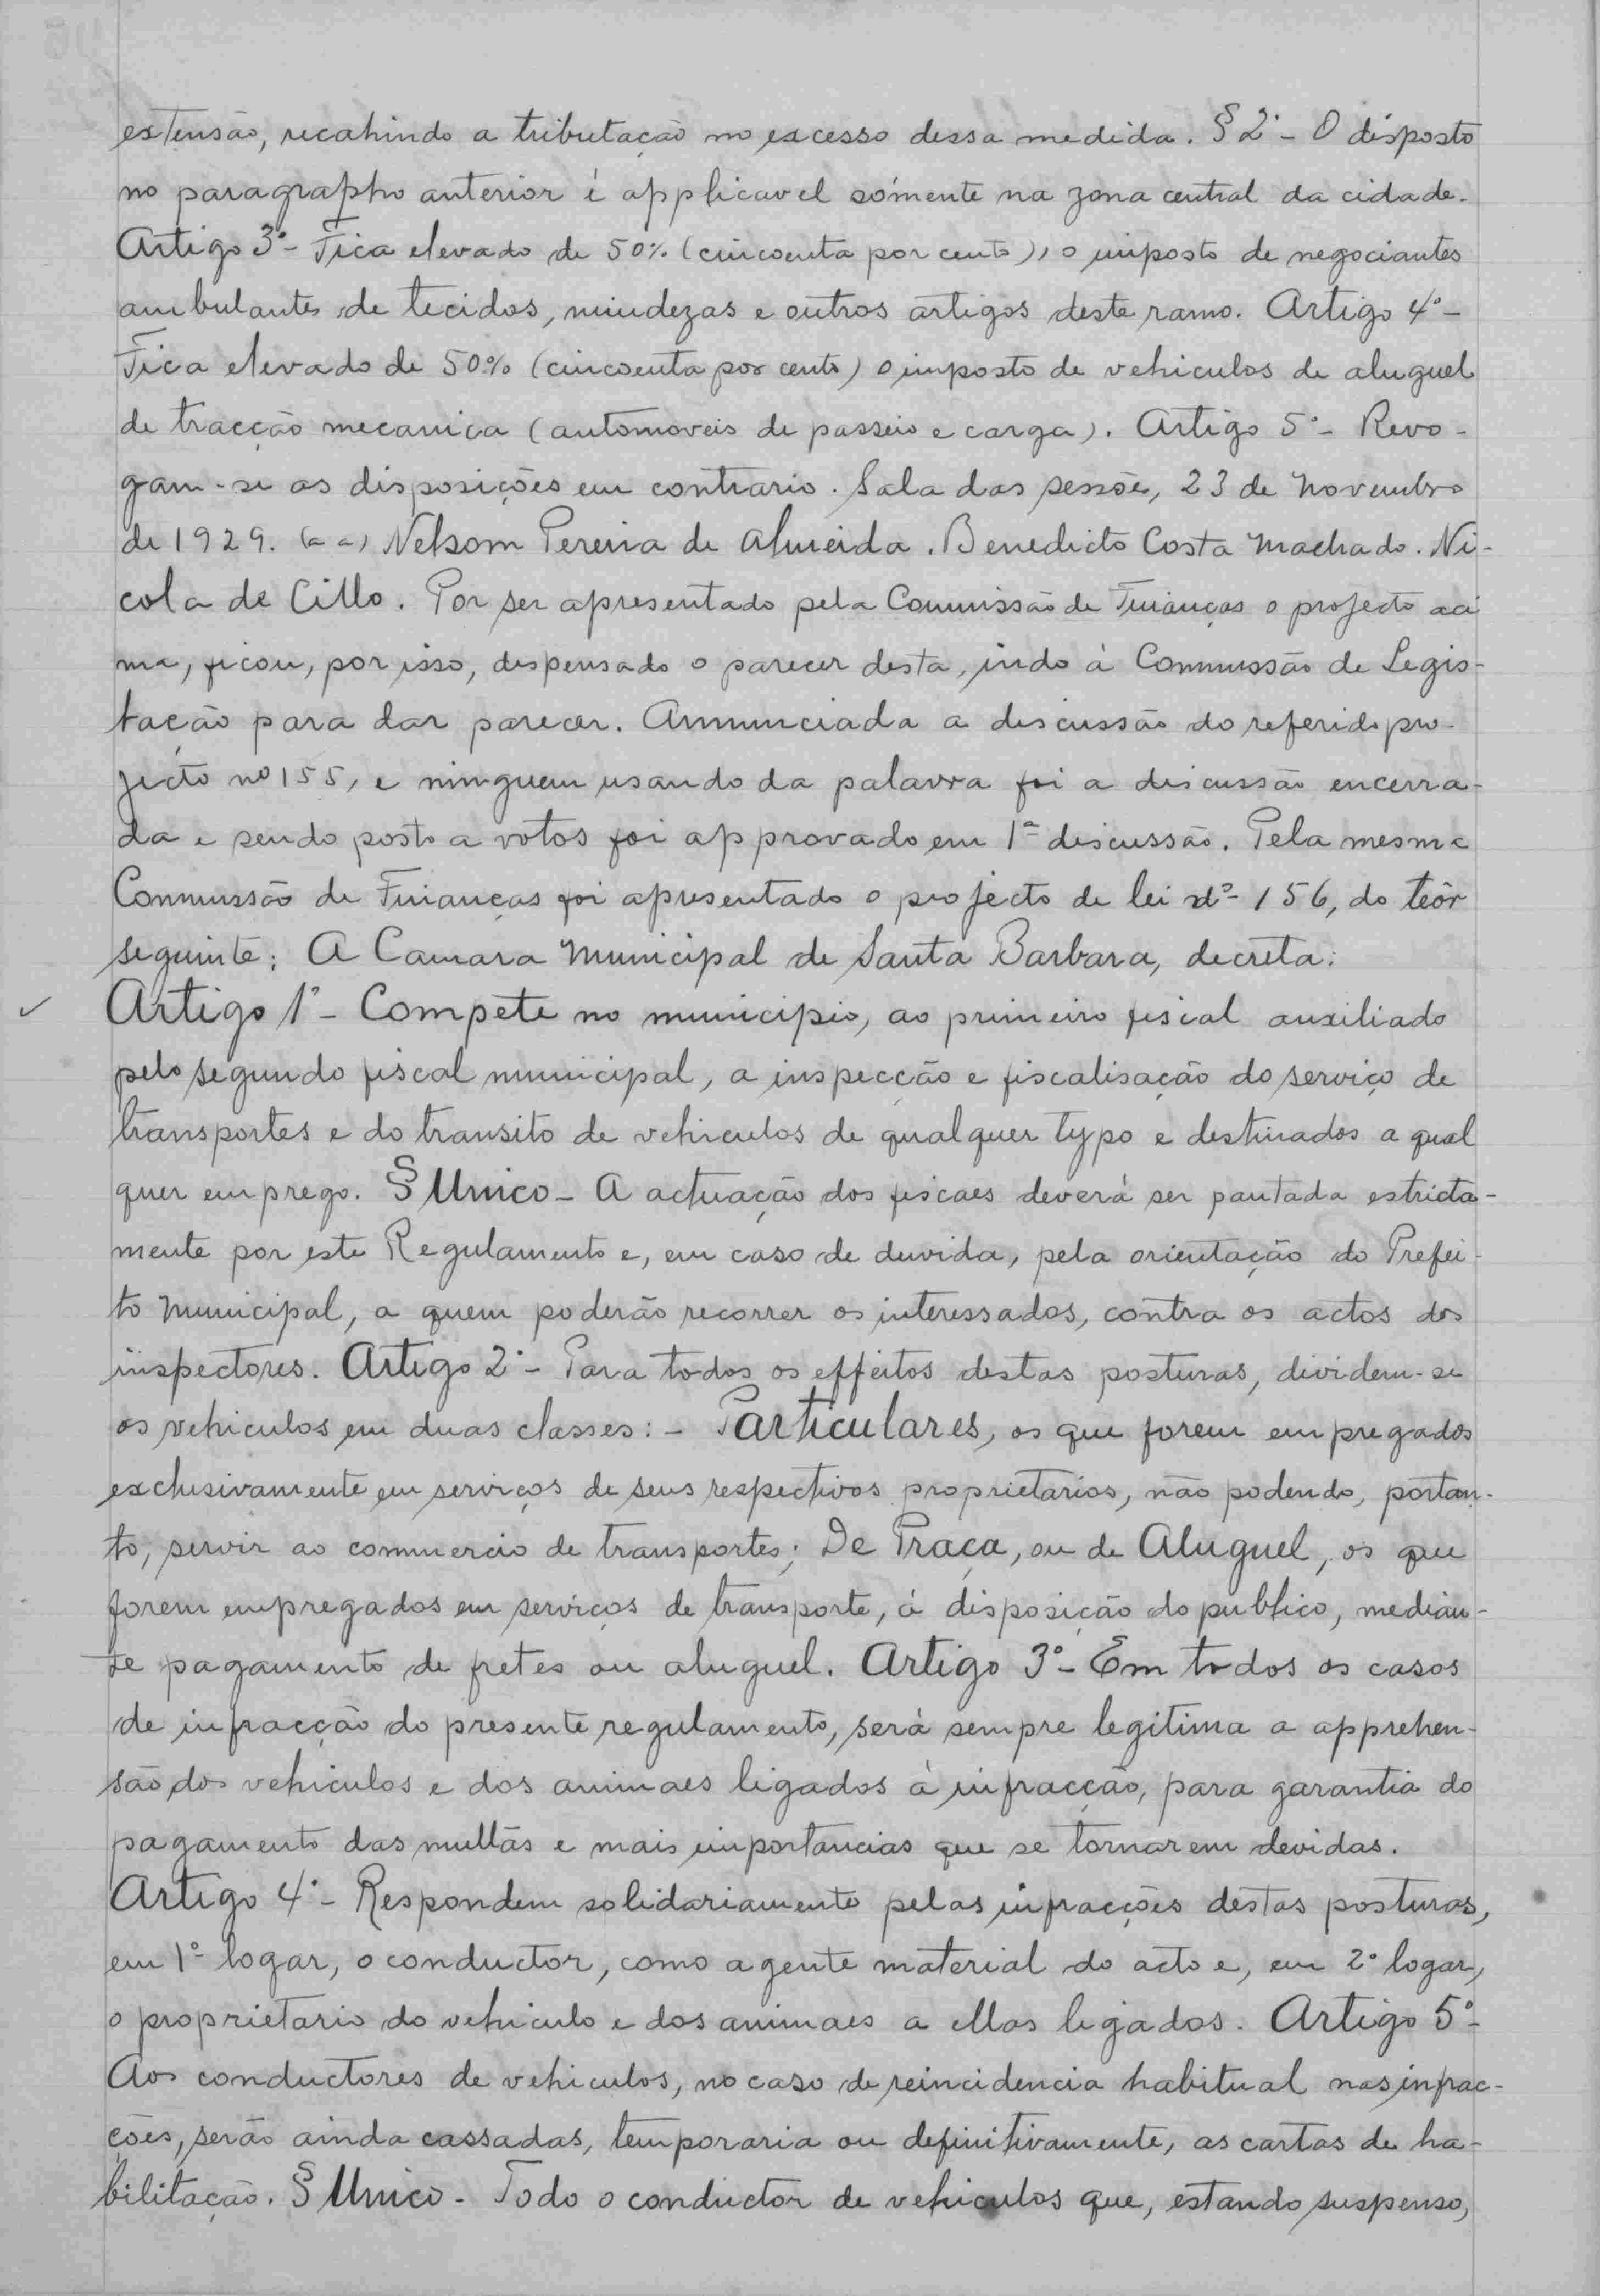 extensão, recahindo a tributação no excesso dessa medida. § 2º - O disposto
no paragrapho anterior é applicavel sómente na zona central da cidade.
Artigo 3º - Fica elevado de 50% (cincoenta por cento), o imposto de negociantes
ambulantes de tecidos, miudezas e outros artigos deste ramo. Artigo 4º -
Fica elevado de 50% (cincoenta por cento) o imposto de vehiculos de aluguel
de tracção mecanica (automoveis de passeio e carga). Artigo 5º - Revo-
gam-se as disposições em contrario. Sala das sessões, 23 de Novembro
de 1929. (a a) Nelsom Pereira de Almeida. Benedicto Costa Machado. Ni-
cola de Cillo. Por ser apresentado pela Commissão de Finanças o projecto aci
ma, ficou, por isso, dispensado o parecer desta, indo á Commissão de Legis-
lação para dar parecer. Annunciada a discussão do referido pro-
jecto nº 155, e ninguem usando da palavra foi a discussão encerra-
da e sendo posto a votos foi approvado em 1ª discussão. Pela mesma
Commissão de Finanças foi apresentado o projecto de lei nº 156, do teôr
seguinte: A Camara Municipal de Santa Barbara, decreta:
✓ Artigo 1º - Compete no municipio, ao primeiro fiscal auxiliado
pelo segundo fiscal municipal, a inspecção e fiscalisação do serviço de
transportes e do transito de vehiculos de qualquer typo e destinados a qual
quer emprego. § Unico - A actuação dos fiscaes deverá ser pautada estricta-
mente por este Regulamento e, em caso de duvida, pela orientação do Prefei-
to Municipal, a quem poderão recorrer os interessados, contra os actos dos
inspectores. Artigo 2º - Para todos os effeitos destas posturas, dividem-se
os vehiculos em duas classes: - Particulares, os que forem empregados
exclusivamente em serviços de seus respectivos proprietarios, não podendo, portan-
to, servir ao commercio de transportes; De Praça, ou de Aluguel, os que
forem empregados em serviços de transporte, á disposição do publico, median-
te pagamento de fretes ou aluguel. Artigo 3º - Em todos os casos
de infracção do presente regulamento, será sempre legitima a apprehen-
são dos vehiculos e dos animaes ligados á infracção, para garantia do
pagamento das multas e mais importancias que se tornarem devidas.
Artigo 4º - Respondem solidariamente pelas infracções destas posturas,
em 1º logar, o conductor, como agente material do acto e, em 2º logar,
o proprietario do vehiculo e dos animaes a ellas ligados. Artigo 5º -
Aos conductores de vehiculos, no caso de reincidencia habitual nas infrac-
ções, serão ainda cassadas, temporaria ou definitivamente, as cartas de ha-
bilitação. § Unico - Todo o conductor de vehiculos que, estando suspenso,